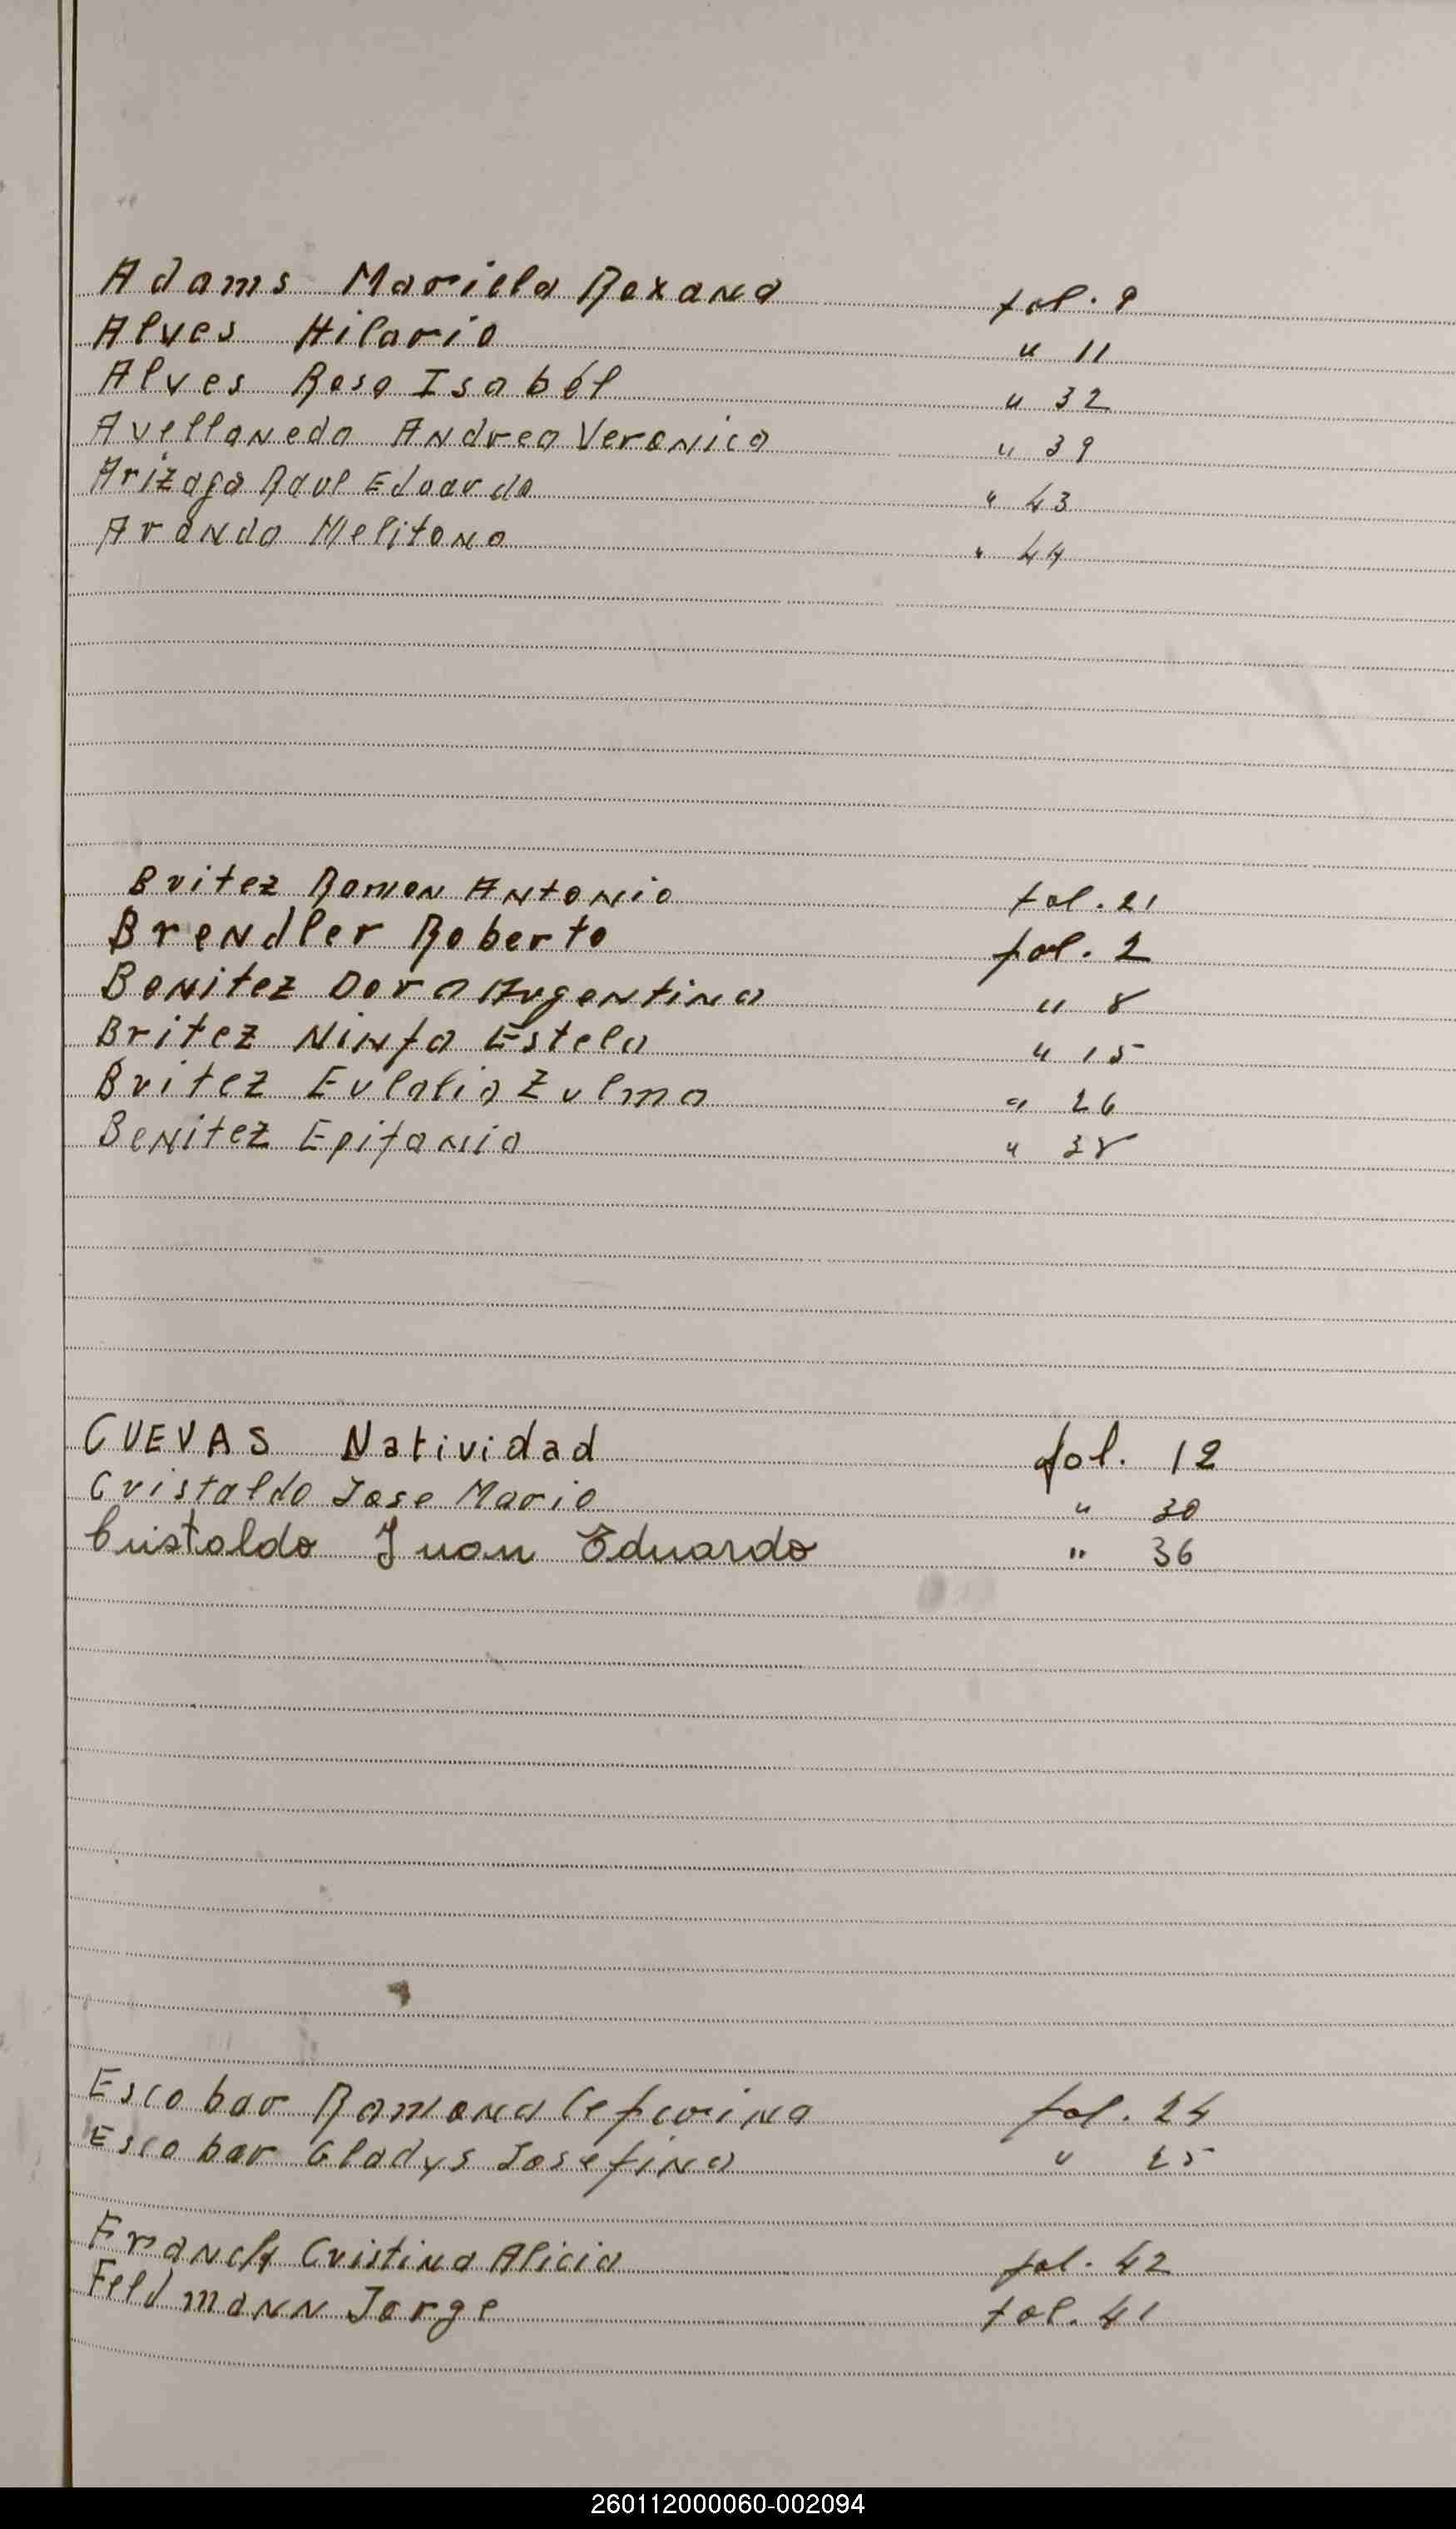 Adams Mariela Roxana fol. 9
Alves Hilario " 11
Alves Rosa Isabél " 32
Avellaneda Andrea Veronica " 39
Arizaga Raul Eduardo " 43
Aranda Melitona " 44
Britez Ramon Antonio fol. 21
Brendler Roberto fol. 2
Benitez Dora Argentina " 8
Britez Ninfa Estela " 15
Britez Eulalia Zulma " 26
Benitez Epifania " 38
CUEVAS Natividad fol. 12
Cristaldo Jose Mario " 30
Cristaldo Juan Eduardo " 36
Escobar Ramona Ceferina fol. 24
Escobar Gladys Josefina " 25
Cristina Alicia fol. 42
Feldmann Jorge fol. 41
260112000060-002094